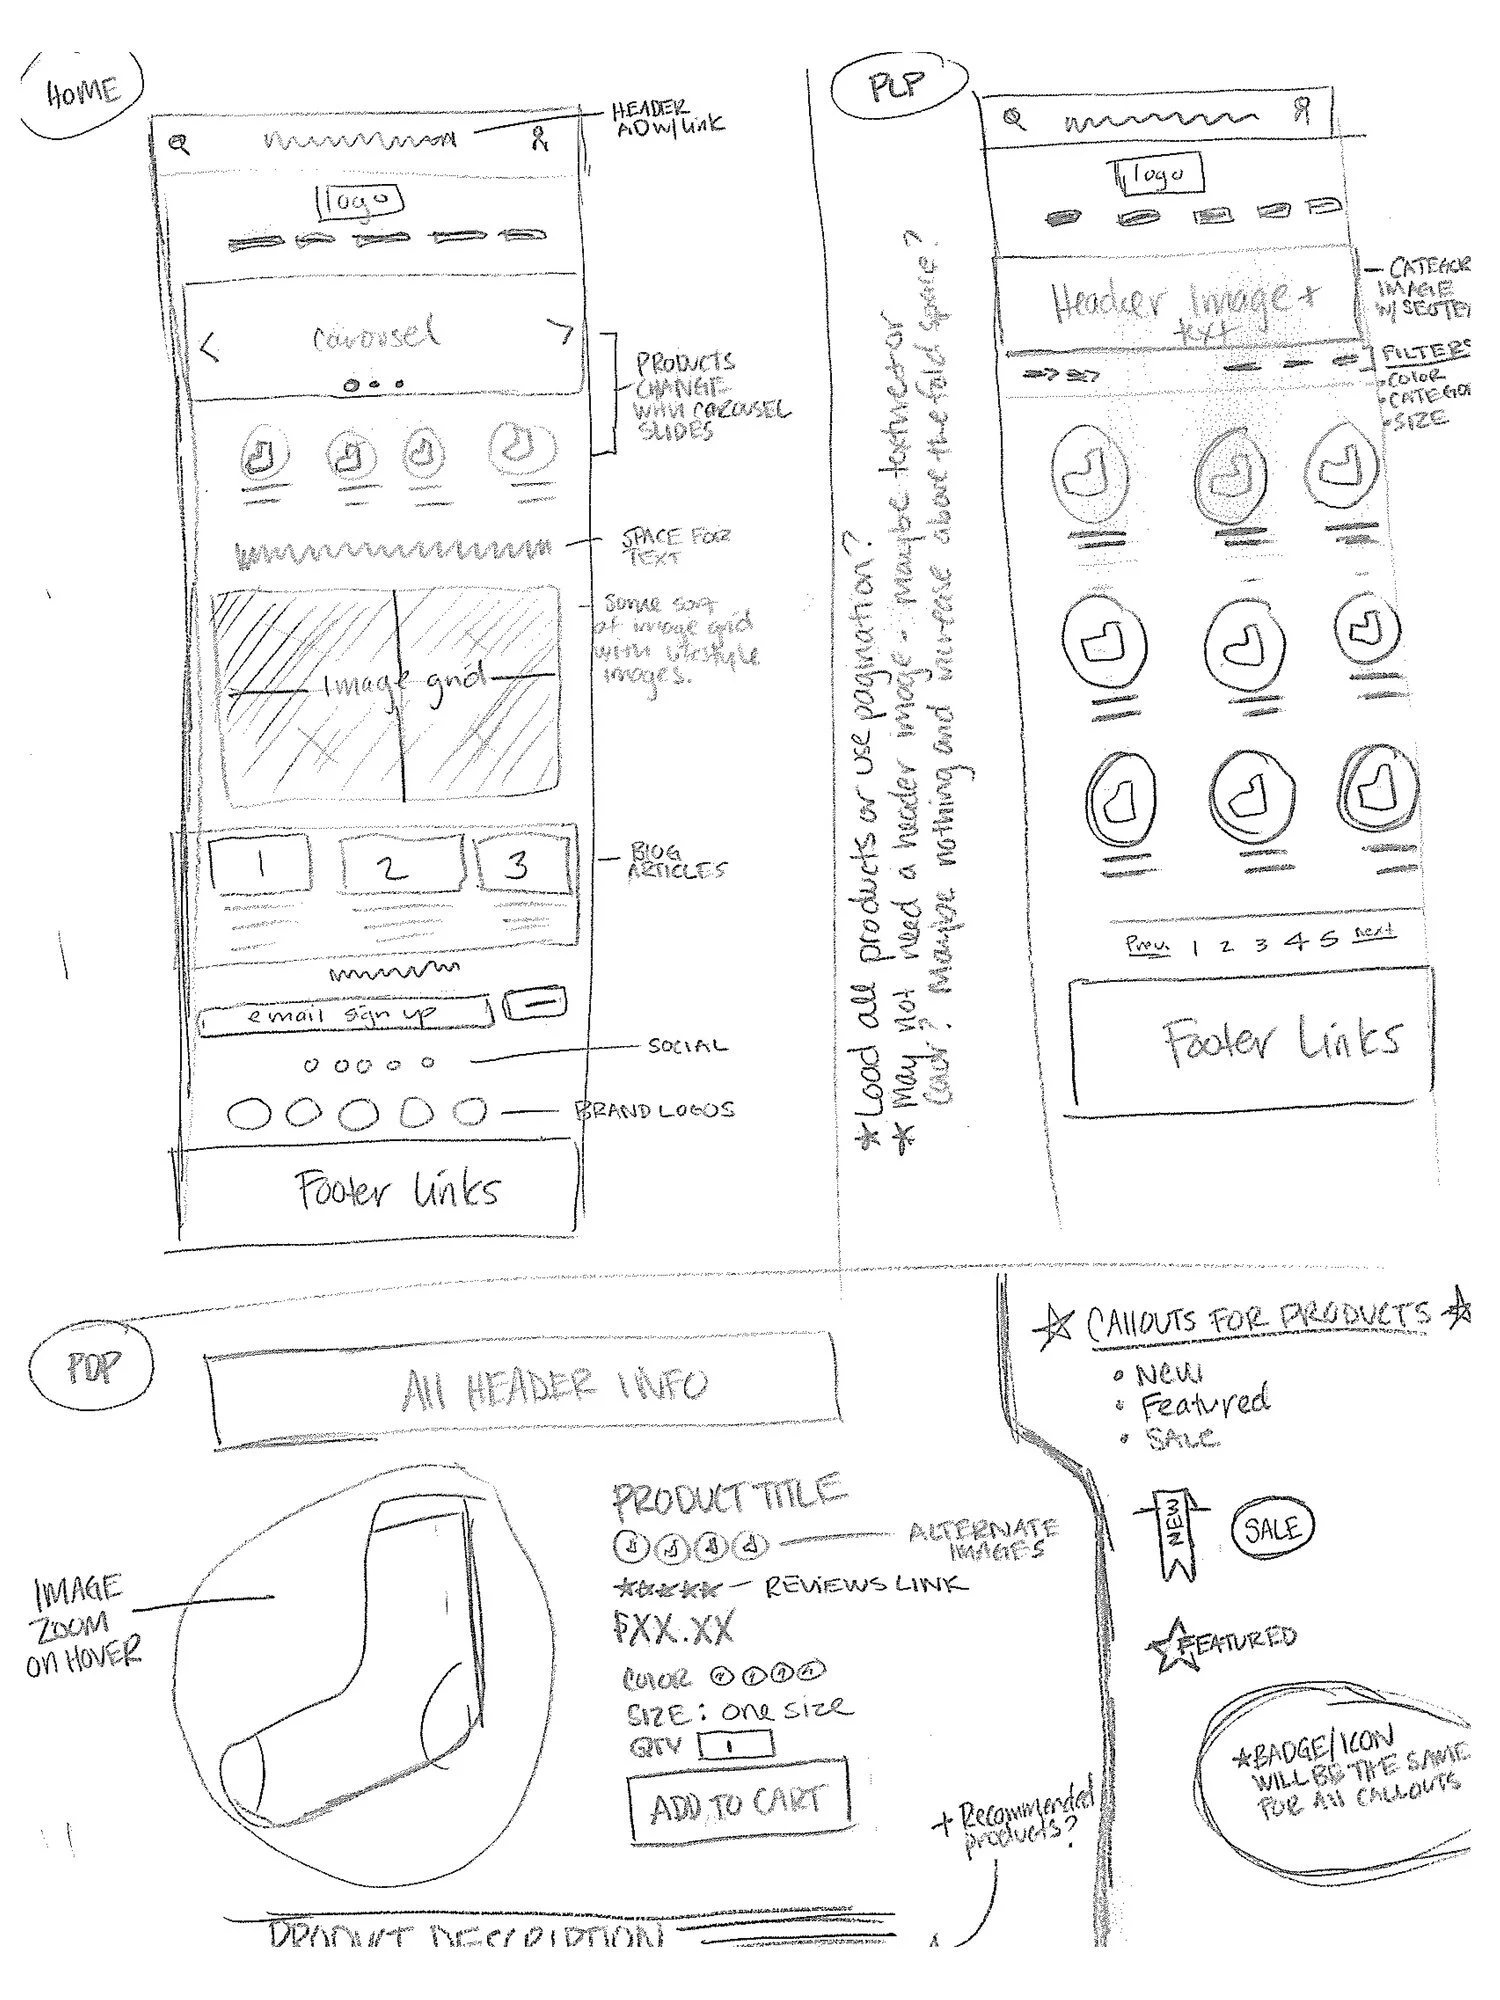 HOME
HEADER
AD W/ Link
logo
carousel
PRODUCTS
CHANGE
WITH CAROUSEL
SLIDES
SPACE FOR
TEXT
Some sort
of image grid
with lifestyle
images.
Image grid
1 2 3
BLOG
ARTICLES
email sign up
SOCIAL
BRAND LOGOS
Footer Links
★ Load all products or use pagination?
★ May not need a header image - maybe texture or
color? Maybe nothing and increase above the fold space?
PLP
logo
Header Image +
text
CATEGOR
IMAGE
W/
FILTERS
• COLOR
• CATEGO
• SIZE
Prev. 1 2 3 4 5 next
Footer Links
PDP
All HEADER INFO
IMAGE
ZOOM
on HOVER
PRODUCT TITLE
ALTERNATE
IMAGES
★★★★★ - REVIEWS LINK
$XX.XX
COLOR
SIZE: one size
QTY 1
ADD TO CART
+ Recommended
products?
PRODUCT DESCRIPTION
☆ CALLOUTS FOR PRODUCTS ☆
• New
• Featured
• SALE
NEW
SALE
FEATURED
★BADGE/ICON
WILL BE THE SAME
FOR All CALLOUTS